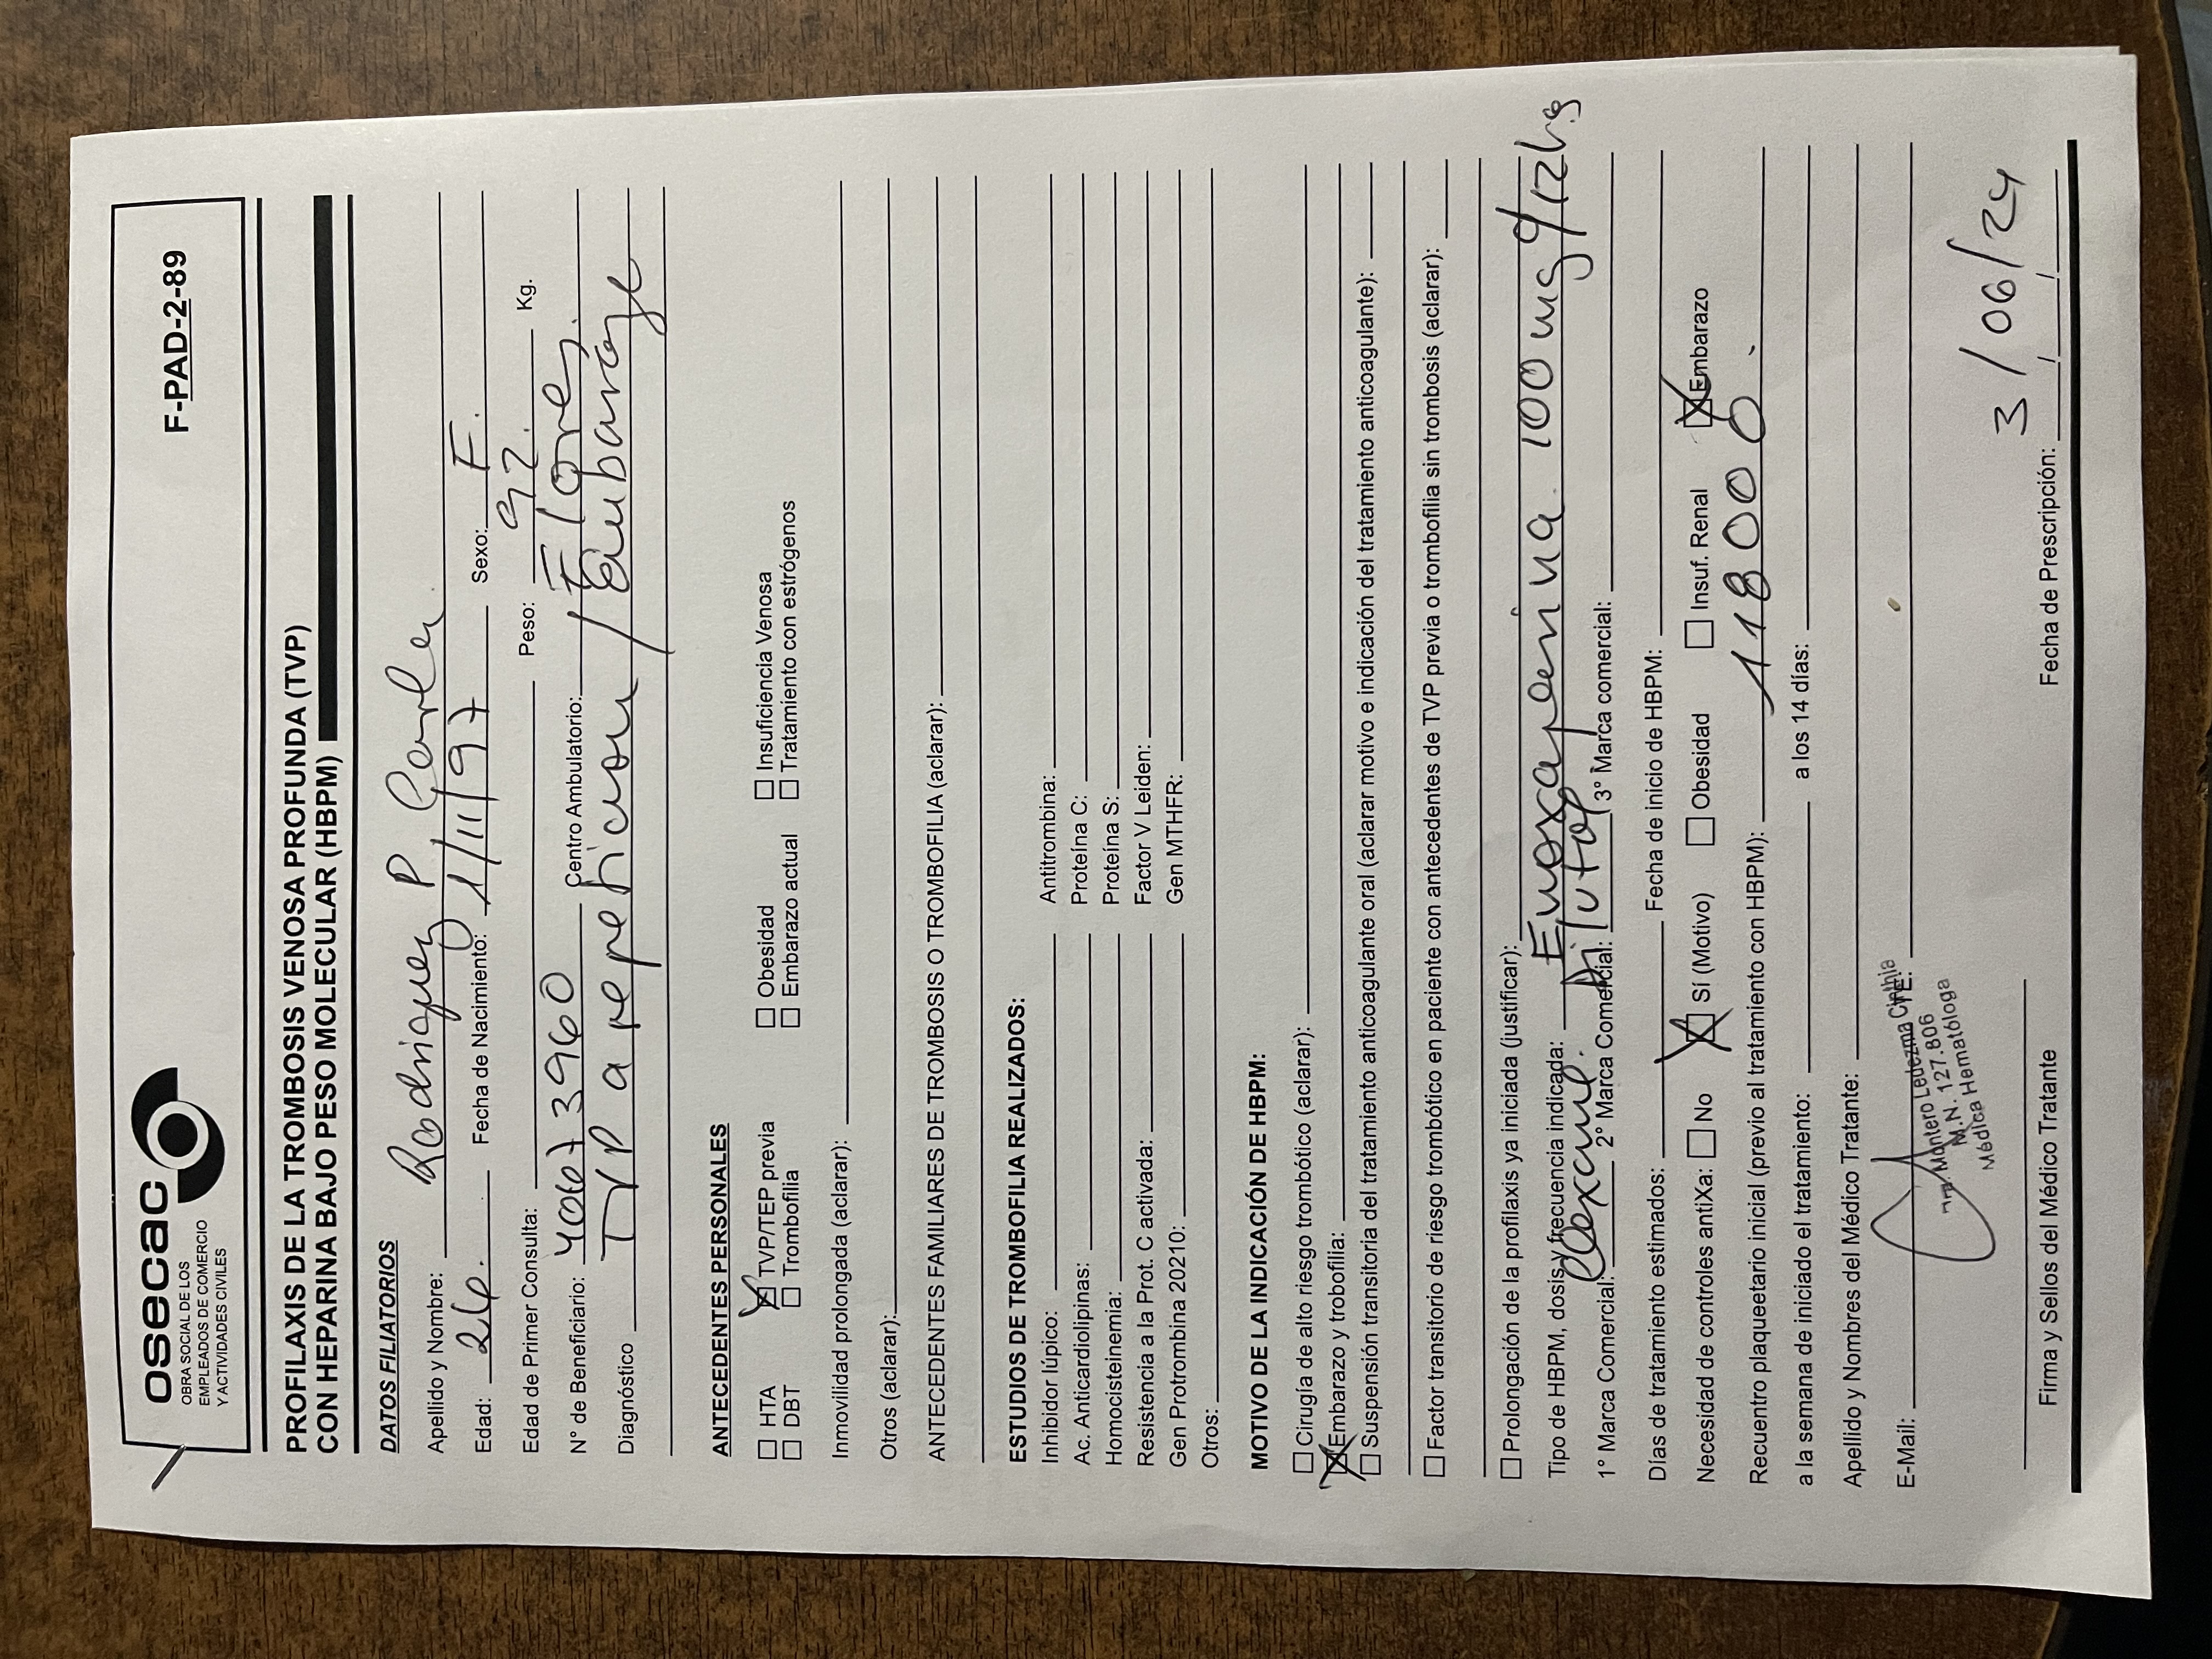 osecac
OBRA SOCIAL DE LOS
EMPLEADOS DE COMERCIO
Y ACTIVIDADES CIVILES
F-PAD-2-89
PROFILAXIS DE LA TROMBOSIS VENOSA PROFUNDA (TVP)
CON HEPARINA BAJO PESO MOLECULAR (HBPM)
DATOS FILIATORIOS
Apellido y Nombre: Rodriguez P, Carla
Edad: 26. Fecha de Nacimiento: 1/11/97 Sexo: F.
Edad de Primer Consulta: Peso: 92. Kg.
N° de Beneficiario: 40673960 Centro Ambulatorio: Flores.
Diagnóstico TVP a repeticion / Embarazo
ANTECEDENTES PERSONALES
HTA TVP/TEP previa Obesidad Insuficiencia Venosa
DBT Trombofilia Embarazo actual Tratamiento con estrógenos
Inmovilidad prolongada (aclarar):
Otros (aclarar):
ANTECEDENTES FAMILIARES DE TROMBOSIS O TROMBOFILIA (aclarar):
ESTUDIOS DE TROMBOFILIA REALIZADOS:
Inhibidor lúpico: Antitrombina:
Ac. Anticardiolipinas: Proteína C:
Homocisteinemia: Proteína S:
Resistencia a la Prot. C activada: Factor V Leiden:
Gen Protrombina 20210: Gen MTHFR:
Otros:
MOTIVO DE LA INDICACIÓN DE HBPM:
Cirugía de alto riesgo trombótico (aclarar):
Embarazo y trobofilia:
Suspensión transitoria del tratamiento anticoagulante oral (aclarar motivo e indicación del tratamiento anticoagulante):
Factor transitorio de riesgo trombótico en paciente con antecedentes de TVP previa o trombofilia sin trombosis (aclarar):
Prolongación de la profilaxis ya iniciada (justificar):
Tipo de HBPM, dosis y frecuencia indicada: Enoxaparina 100 mg c/12hs
1° Marca Comercial: Clexane. 2° Marca Comercial: Dilutol 3° Marca comercial:
Días de tratamiento estimados: Fecha de inicio de HBPM:
Necesidad de controles antiXa: No Sí (Motivo) Obesidad Insuf. Renal Embarazo
Recuentro plaqueetario inicial (previo al tratamiento con HBPM): 118000.
a la semana de iniciado el tratamiento: a los 14 días:
Apellido y Nombres del Médico Tratante:
E-Mail: TE:
Dra. Montero Ledezma Cinthia
M.N. 127.806
Médica Hematóloga
3/06/24
Firma y Sellos del Médico Tratante Fecha de Prescripción: / /